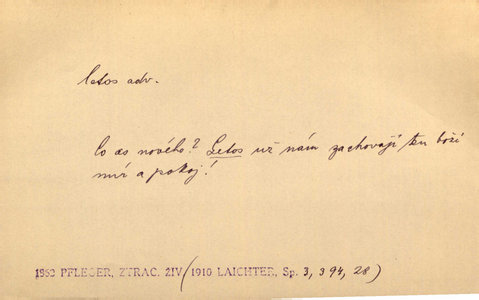 letos adv.
Co as nového? Letos už nám zachovají ten boží
mír a pokoj!
1862 PFLEGER, ZTRAC. ŽIV. (1910 LAICHTER, Sp. 3, 394, 28)